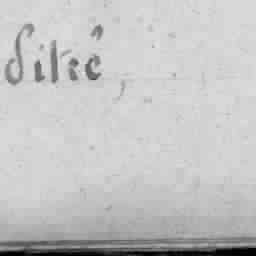 ditré,